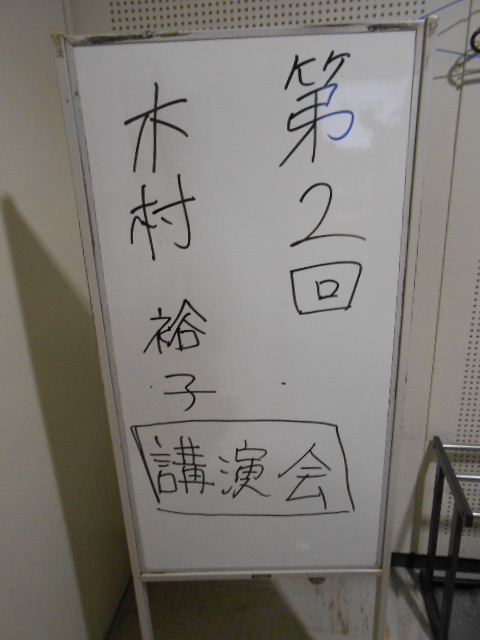 第2回
木村 裕子
講演会